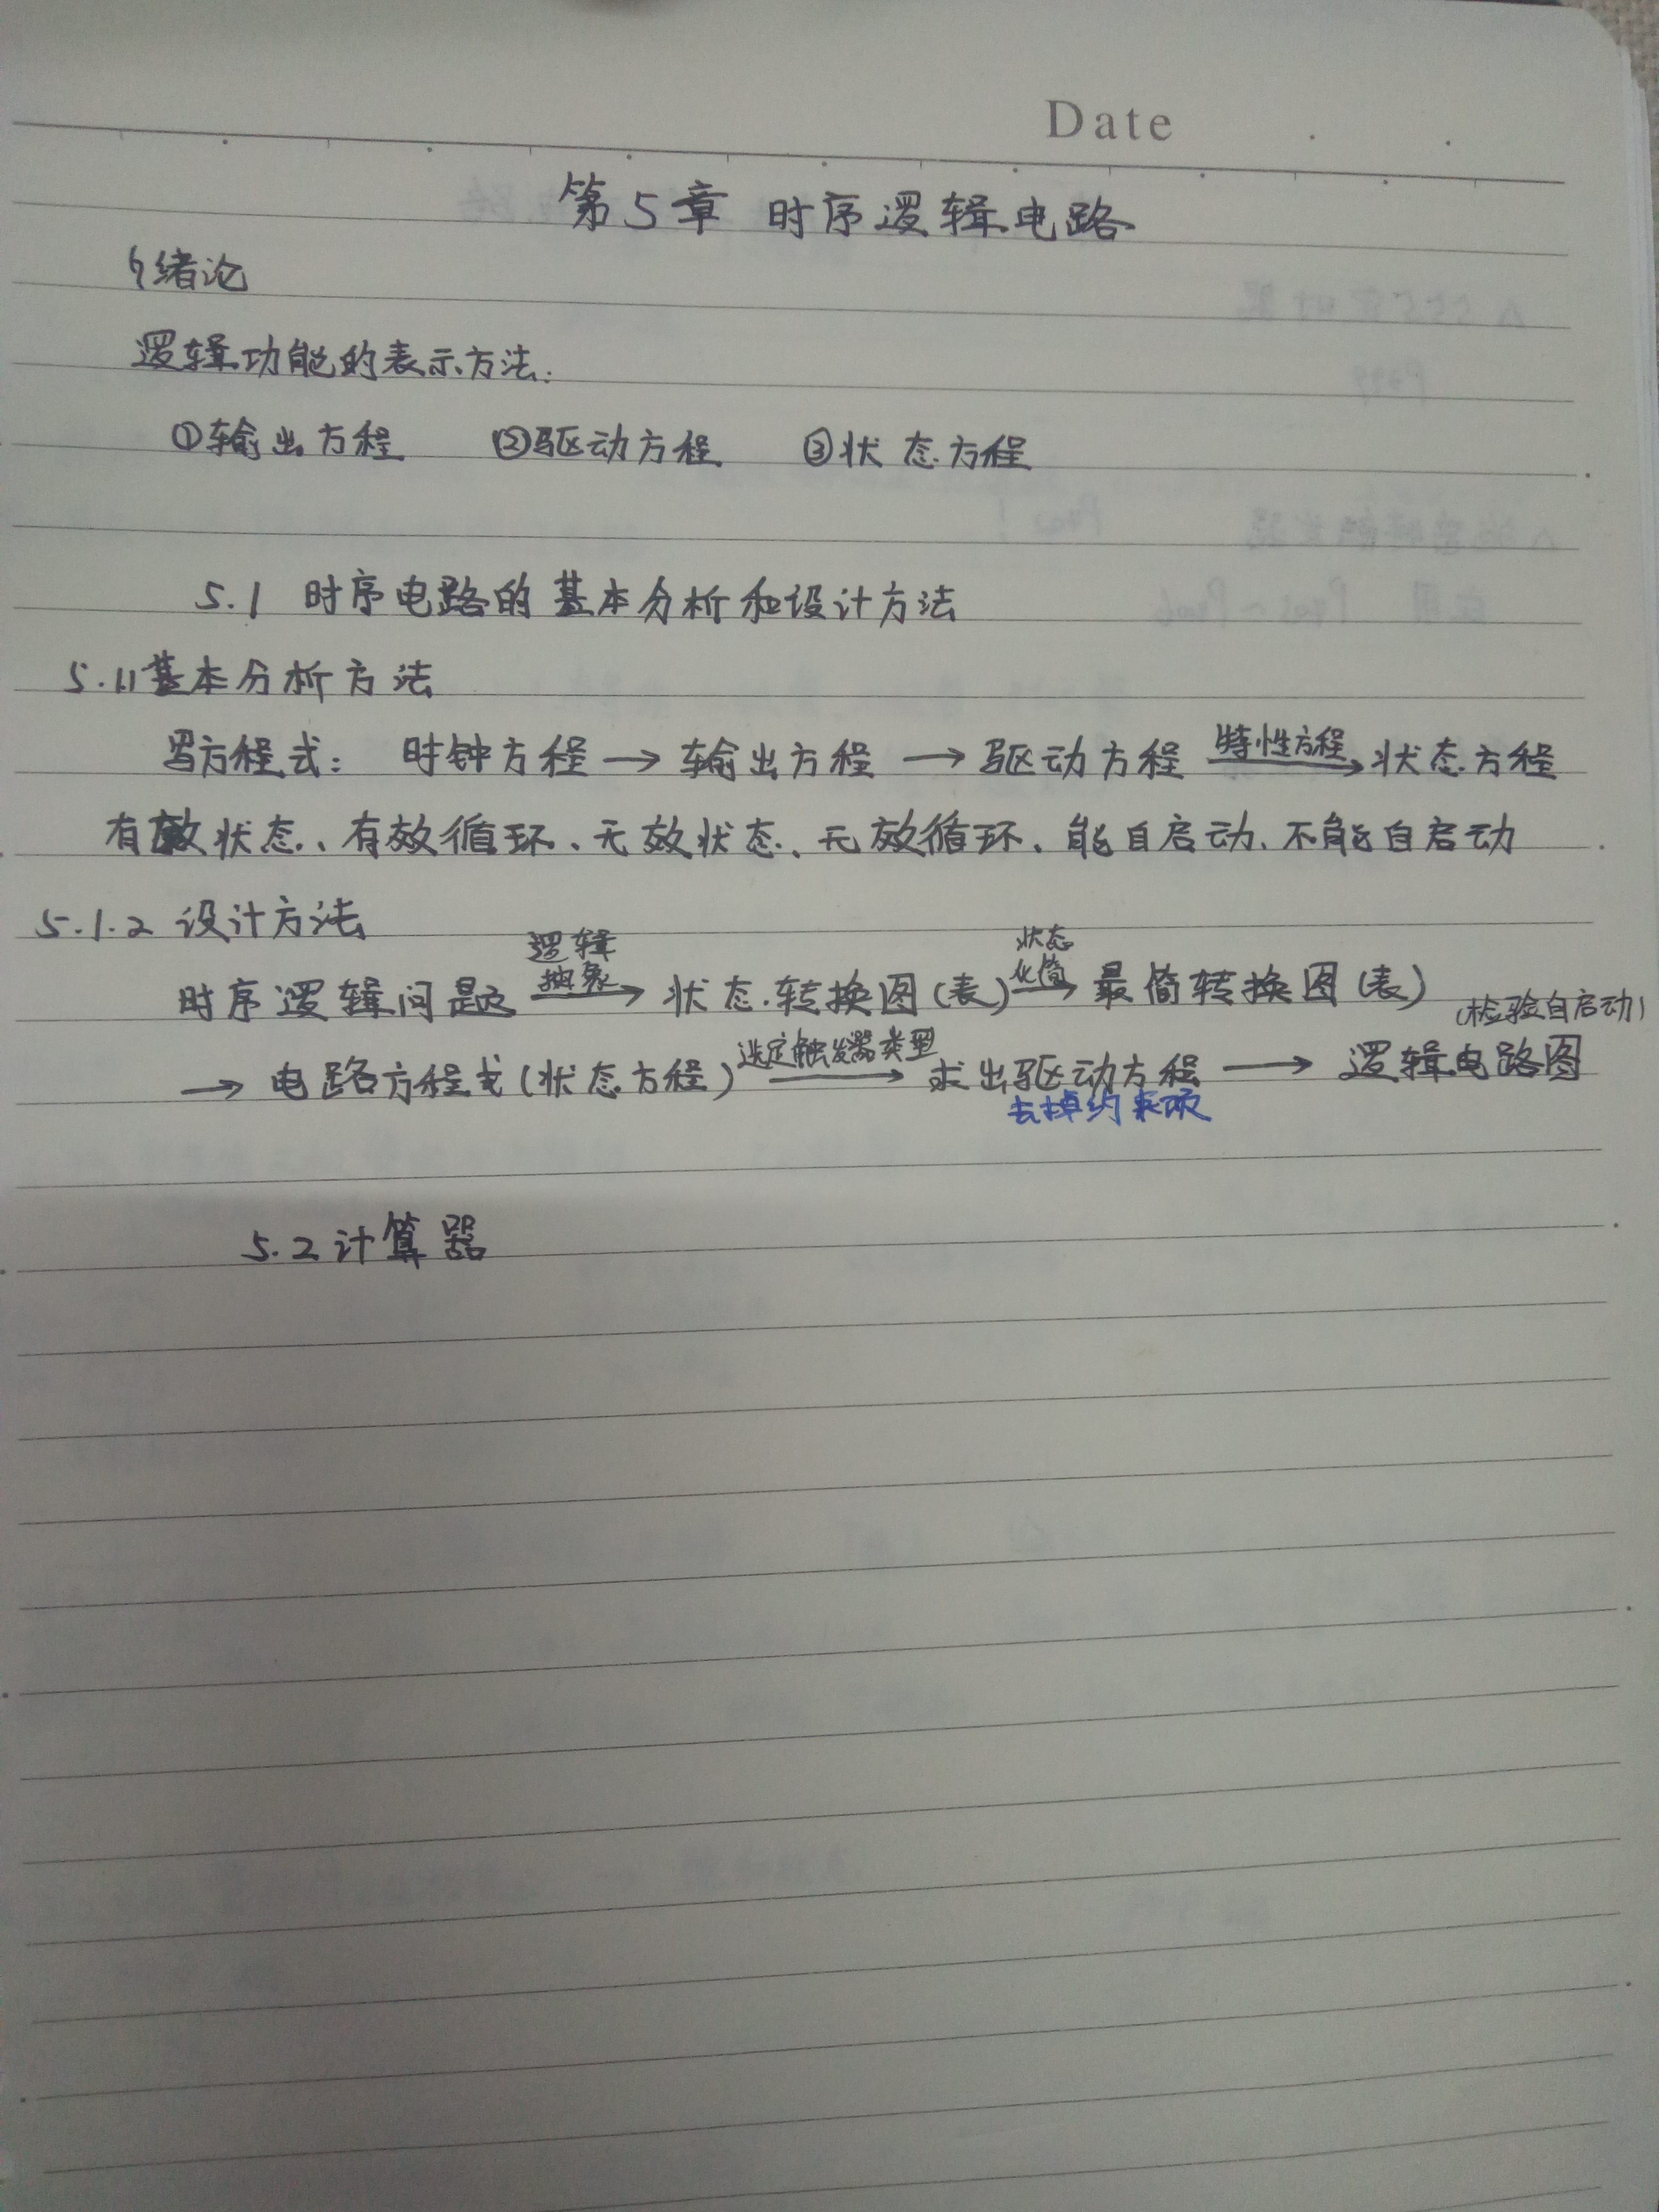 Date
第5章 时序逻辑电路
绪论
逻辑功能的表示方法:
①输出方程 ②驱动方程 ③状态方程
5.1 时序电路的基本分析和设计方法
5.1.1基本分析方法
写方程式: 时钟方程 → 输出方程 → 驱动方程 特性方程→ 状态方程
有效状态、有效循环、无效状态、无效循环、能自启动、不能自启动
5.1.2 设计方法
时序逻辑问题 逻辑抽象→ 状态转换图(表) 状态化简→ 最简转换图(表)
(检验自启动)
→ 电路方程式(状态方程) 选定触发器类型→ 求出驱动方程 → 逻辑电路图
去掉约束项
5.2计算器